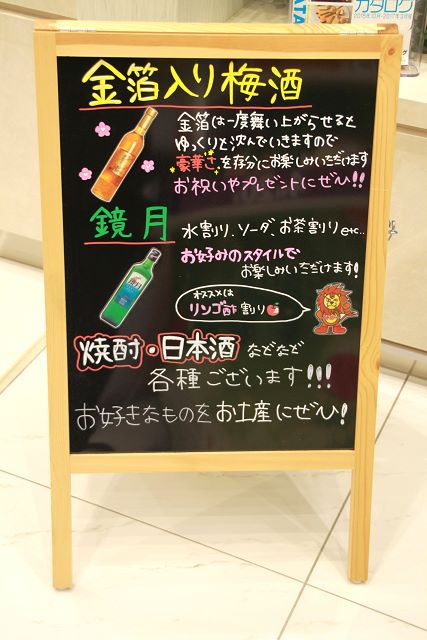 カタログ
金箔入り梅酒
金箔は一度舞い上がらせると
ゆっくりと沈んでいきますので
豪華さを存分にお楽しみいただけます
お祝いやプレゼントにぜひ!!
鏡月 水割り、ソーダ、お茶割りetc...
お好みのスタイルで
お楽しみいただけます!
オススメは
リンゴ酢割り
焼酎・日本酒などなど
各種ございます!!!
お好きなものをお土産にぜひ!